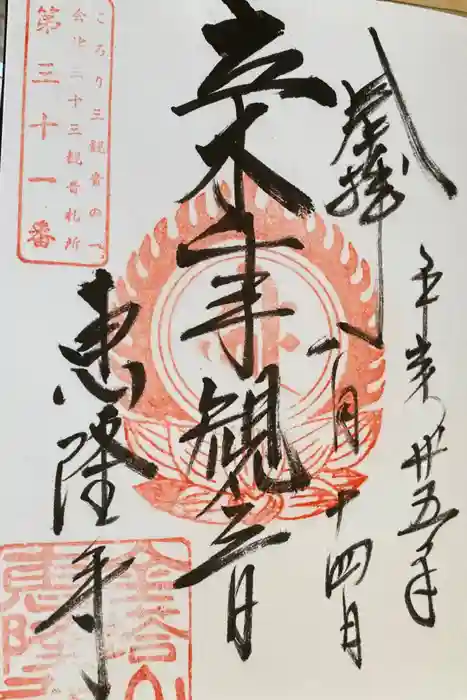 奉拝
平成廿五年
八月十四日
立木千手観音
ころり三観音の一
会津三十三観音札所
第三十一番
恵隆寺
金塔山
恵隆寺